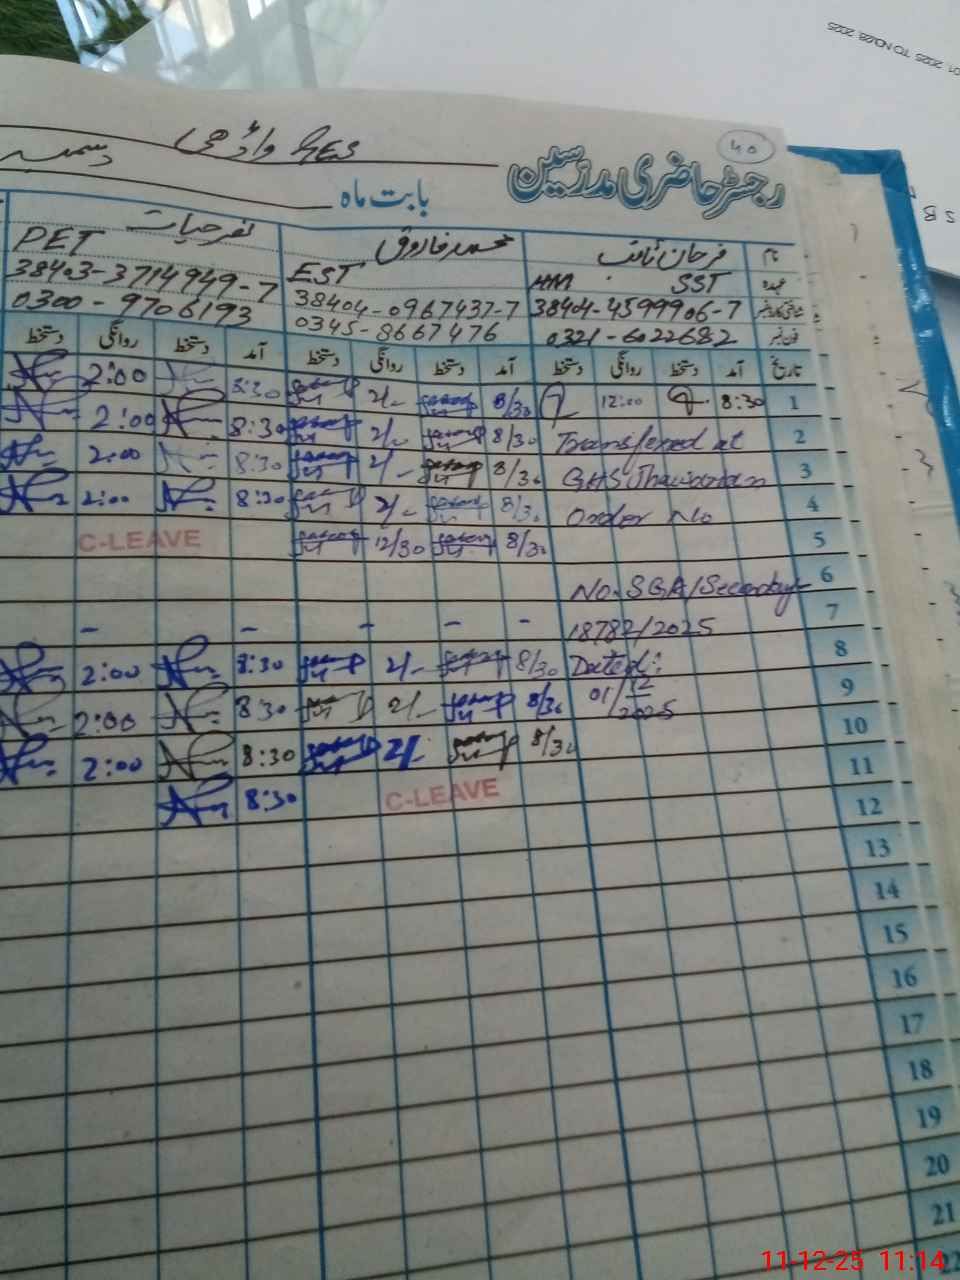 01, 2025 TO NOV28, 2025
S B
40
رجسٹر حاضری مدرسین
GES واڈھی
بابت ماہ دسمبر
نام فرحان ثاقب محمد فاروق ظفر حیات
عہدہ SST EST PET
شناختی کارڈ نمبر 38404-4599906-7 38404-0967437-7 38403-3714949-7
فون نمبر 0321-6022682 0345-8667476 0300-9706193
تاریخ آمد دستخط روانگی دستخط آمد دستخط روانگی دستخط آمد دستخط روانگی دستخط
1 8:30 12:00 8/30 2/- 8:30 2:00
2 Transfered at 8/30 2/- 8:30 2:00
3 GHS 8/30 2/- 8:30 2:00
4 Order No 8/30 2/- 8:30 2:00
5 8/30 12/30 C-LEAVE
6 No. SGA/Secondary
7 18782/2025 - - - - -
8 Dated: 8/30 2/- 8:30 2:00
9 01/12/2025 8/30 2/- 8:30 2:00
10 8/30 2/- 8:30 2:00
11 C-LEAVE 8:30
12
13
14
15
16
17
18
19
20
21
22
11-12-25 11:14